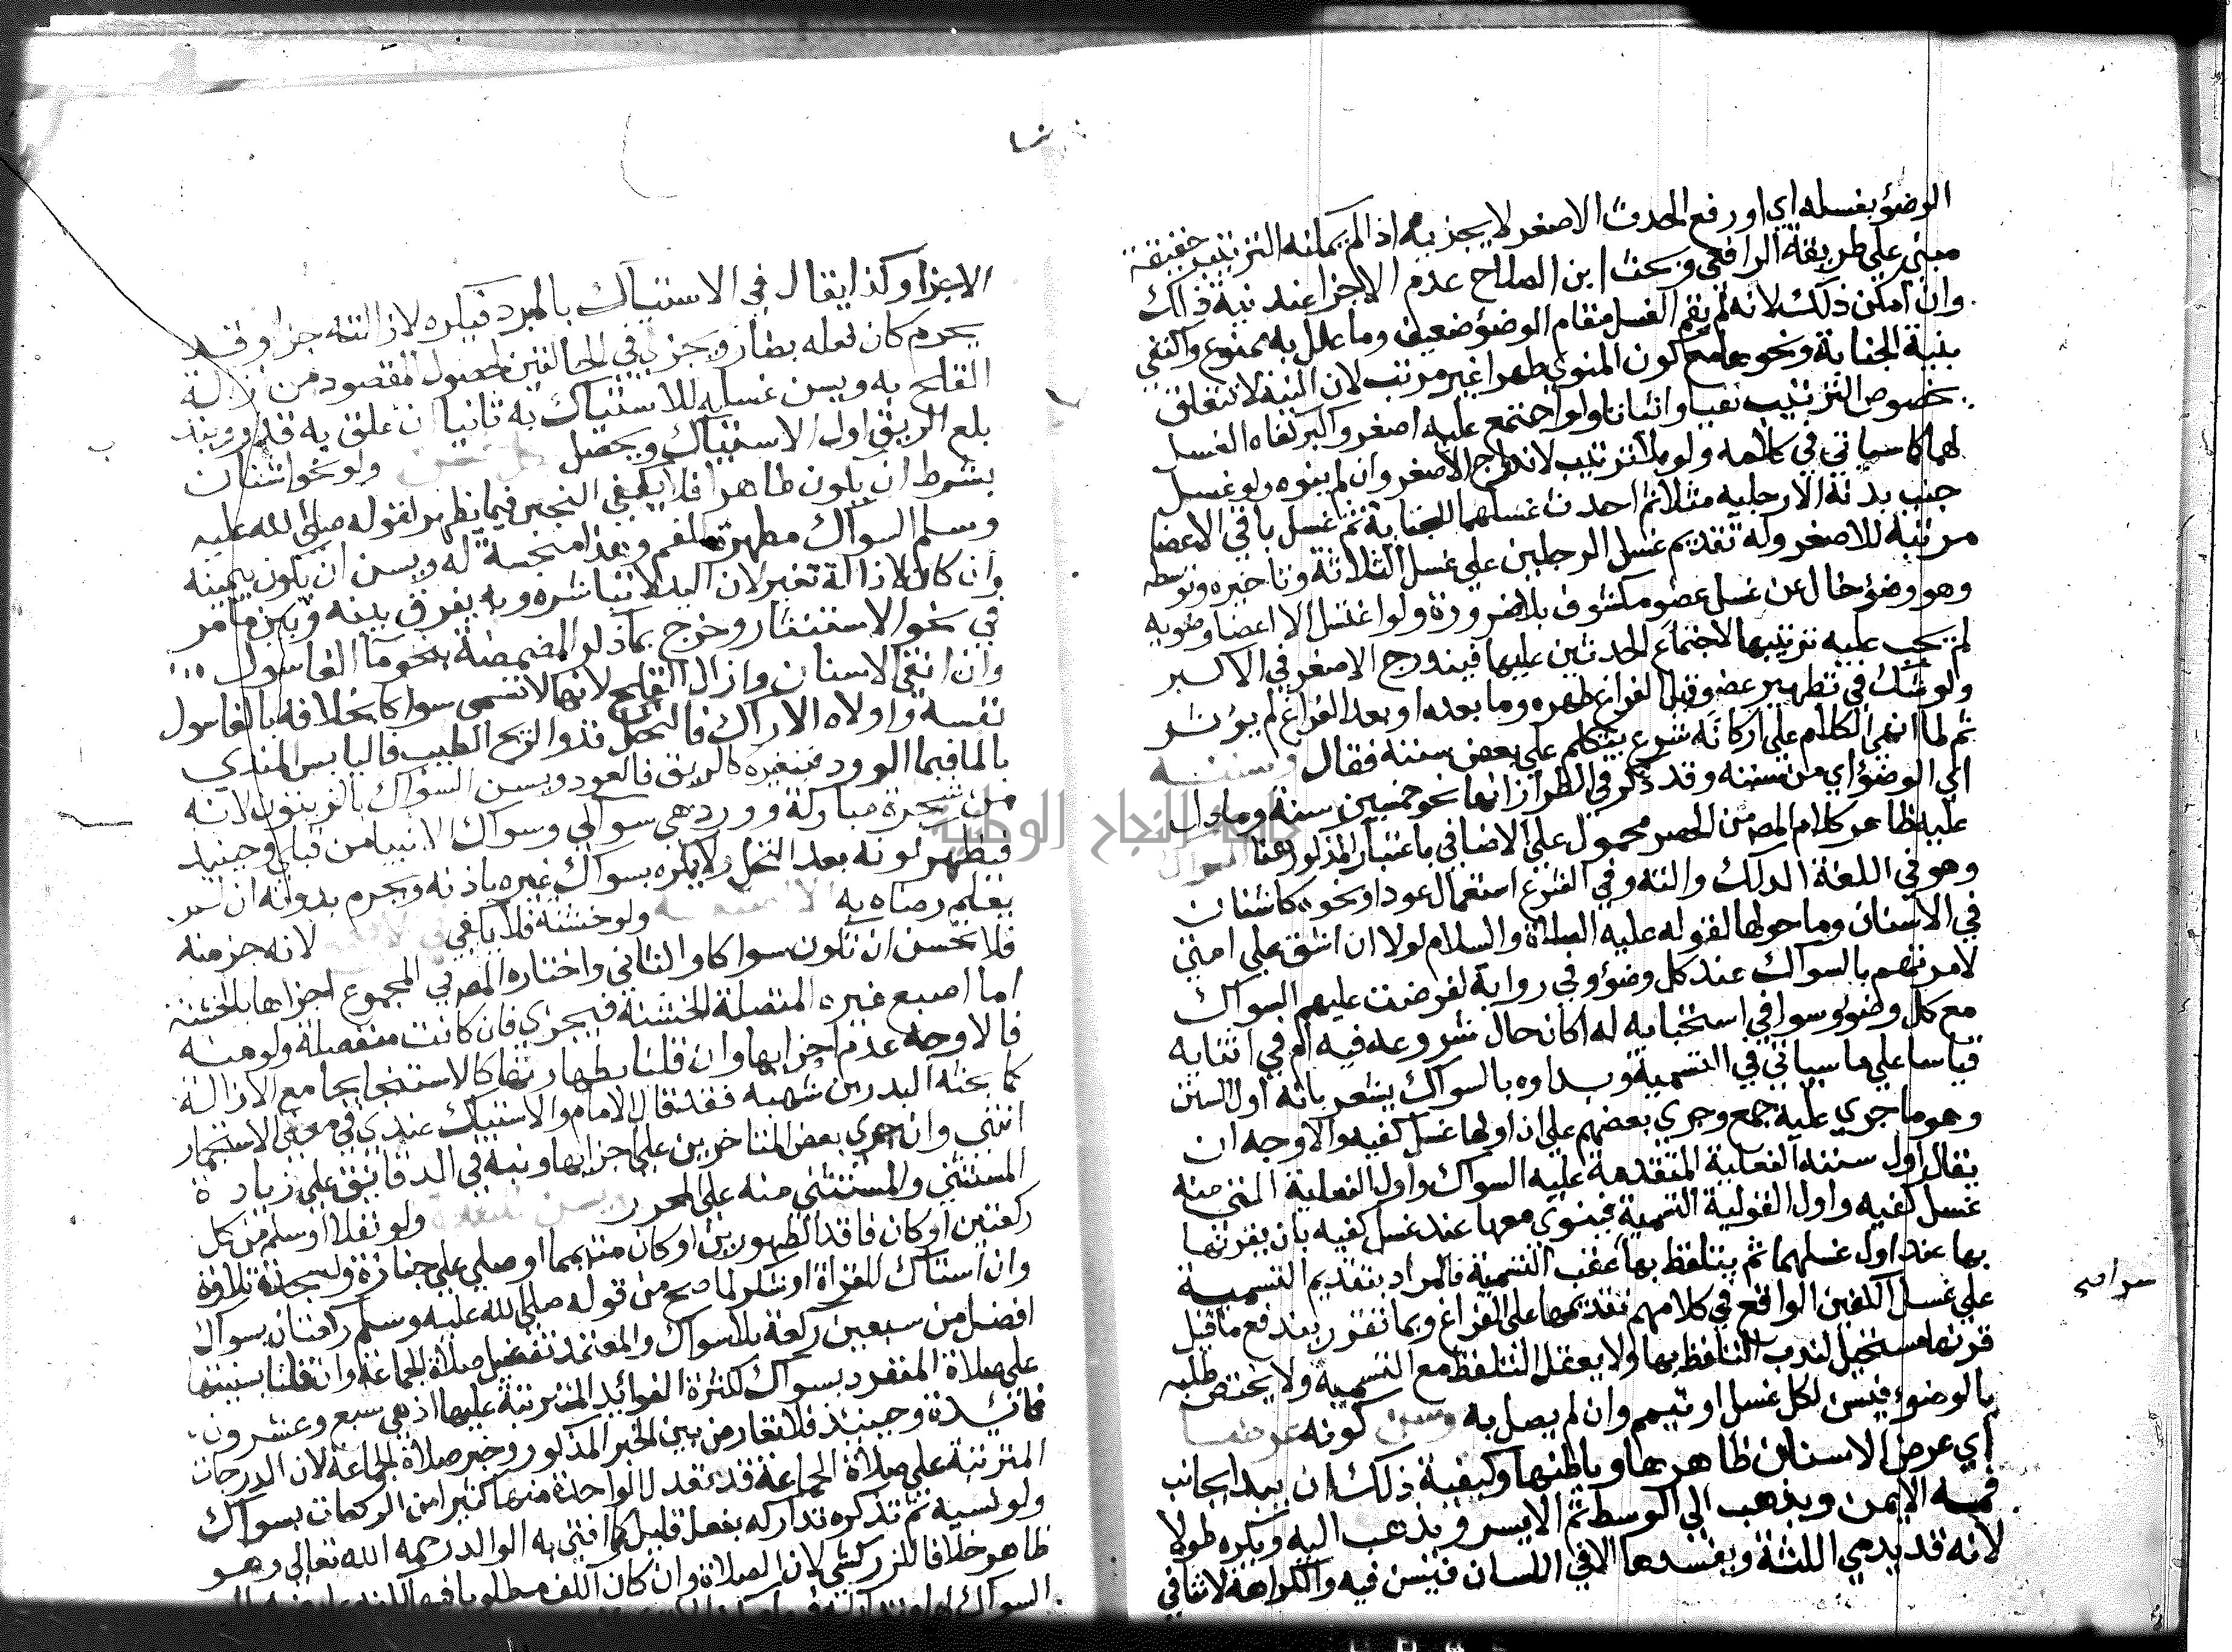 الوضؤ بغسله اي او رفع الحدث الاصغر لا يجزيه اذا لم يمكنه الترتيب حقيقة
مبني علي طريقة الرافعي وبحث ابن الصلاح عدم الاجزا عند نية ذلك
وان امكن ذلك لانه لم يقم الغسل مقام الوضؤ ضعيف وما علل به ممنوع واكتفي
بنية الجنابة ونحوها مع كون المنوي طهرا غير مرتب لان النية لا تتعلق
بخصوص الترتيب نفيا واثباتا ولو اجتمع عليه اصغر واكبر كفاه الغسل
لهما كما سياتي في كلامه ولو بلا ترتيب لاندراج الاصغر وان لم ينوه ولو غسل
جنب بدنه الا رجليه مثلا ثم احدث غسلهما للجنابة ثم غسل باقي الاعضا
مرتبة للاصغر وله تقديم غسل الرجلين علي غسل الثلاثة وتاخيره وتوسطه
وهو وضؤ خال عن غسل عضو مكشوف بلا ضرورة ولو اغتسل الا اعضا وضويه
لم يجب عليه ترتيبها لاجتماع الحدثين عليها فيندرج الاصغر في الاكبر
ولو شك في تطهير عضو قبل الفراغ طهره وما بعده او بعد الفراغ لم يؤثر
ثم لما انهي الكلام علي اركانه شرع يتكلم علي بعض سننه فقال وسننه
اي الوضؤ اي من سننه وقد ذكر في الطراز انها نحو خمسين سنة وما دل
عليه ظاهر كلام المص من الحصر محمول علي الاضافي باعتبار المذكور هنا السواك
وهو في اللغة الدلك والته وفي الشرع استعمال عود او نحوه كاشنان
في الاسنان وما حولها لقوله عليه الصلاة والسلام لولا ان اشق علي امتي
لامرتهم بالسواك عند كل وضؤ وفي رواية لفرضت عليهم السواك
مع كل وضؤ وسوا في استحبابه له اكان حال شروعه فيه ام في اثنايه
قياسا علي ما سياتي في التسمية وبداوه بالسواك يشعر بانه اول السنن
وهو ما جري عليه جمع وجري بعضهم علي ان اولها غسل كفيه والاوجه ان
يقال اول سننه الفعلية المتقدمة عليه السواك واول الفعلية التي منه
غسل كفيه واول القولية التسمية فينوي معها عند غسل كفيه بان يقرنها
بها عند اول غسلهما ثم يتلفظ بها عقب التسمية فالمراد بتقديم التسمية
علي غسل الكفين الواقع في كلامهم تقديمها علي الفراغ وبما تقرر يندفع ما قيل
قرنها مستحيل لندب التلفظ بها ولا يعقل التلفظ مع التسمية ولا يختص طلبه
بالوضوء فيسن لكل غسل او تيمم وان لم يصل به وسن كونه عرضا
اي عرض الاسنان ظاهرها وباطنها وكيفية ذلك ان يبدا بجانب
فمه الايمن ويذهب الي الوسط ثم الايسر ويذهب اليه ويكره طولا
لانه قد يدمي اللثة ويفسدها الا في اللسان فيسن فيه والكراهة لا تنافي
الاجزا وكذا يقال في الاستياك بالمبرد فيكره لازالته جزا وقد
يحرم كان فعله بضار ويجزي في الحالتين لحصول المقصود من ازالة
القلح به ويسن غسله للاستياك به ثانيا ان علق به قذر ويندب
بلع الريق اول الاستياك ويحصل بكل خشن ولو نحو اشنان
بشرط ان يكون طاهرا فلا يكفي النجس فيما يظهر لقوله صلي الله عليه
وسلم السواك مطهرة للفم وهذا منجسة له ويسن ان يكون بيمينه
وان كان لازالة تغير لان اليد لا تباشره وبه يفرق بينه وبين ما مر
في نحو الاستنثار وخرج بما ذكر المضمضة بنحو ما الغاسول
وان انقي الاسنان وازال القلح لانها لا تسمي سواكا بخلافه بالغاسول
نفسه واولاه الاراك فالنخل فذو الريح الطيب فاليابس المندي
بالما فيما الورد فبغيره كالريق فالعود ويسن السواك بالزيتون لانه
من شجرة مباركة وورد هي سواكي وسواك الانبيا من قبلي وحينيذ
فيظهر كونه بعد النخل ولا يكره بسواك غيره باذنه ويحرم بدونه ان لم
يعلم رضاه به الا اصبعه ولو خشنة فلا يكفي لانه جز منه
فلا يحسن ان تكون سواكا والثاني واختاره المص في المجموع اجزاها بالخشنة
اما اصبع غيره المتصلة الخشنة فيجزي فان كانت منفصلة ولو منه
فالاوجه عدم اجزايها وان قلنا بطهارتها كالاستنجا بجامع الازالة
كما بحثه البدر بن شهبه فقد قال الامام والاستياك عندي في معني الاستجمار
انتهي وان جري بعض المتاخرين علي اجزايها ونبه في الدقايق علي زيادة
المستثني والمستثني منه علي المحرر ويسن للصلاة ولو نفلا وسلم من كل
ركعتين او كان فاقد الطهورين او كان متيمما او صلي علي جنازة ولسجدة تلاوة
وان استاك للقراة او شكر لما صح من قوله صلي الله عليه وسلم ركعتان بسواك
افضل من سبعين ركعة بلا سواك والمعتمد تفضيل صلاة الجماعة وان قلنا بسنيتها
علي صلاة المنفرد بسواك لكثرة الفوايد المترتبة عليها اذ هي سبع وعشرون
فايدة وحينيذ فلا تعارض بين الخبر المذكور وخبر صلاة الجماعة لان الدرجات
المترتبة علي صلاة الجماعة قد تعدل الواحدة منها كثيرا من الركعات بسواك
ولو نسيه ثم تذكره تداركه بفعل قليل كما افتي به الوالد رحمه الله تعالي وهو
ظاهر خلافا للزركشي لان الصلاة وان كان الكف مطلوبا فيها
جامعة النجاح الوطنية